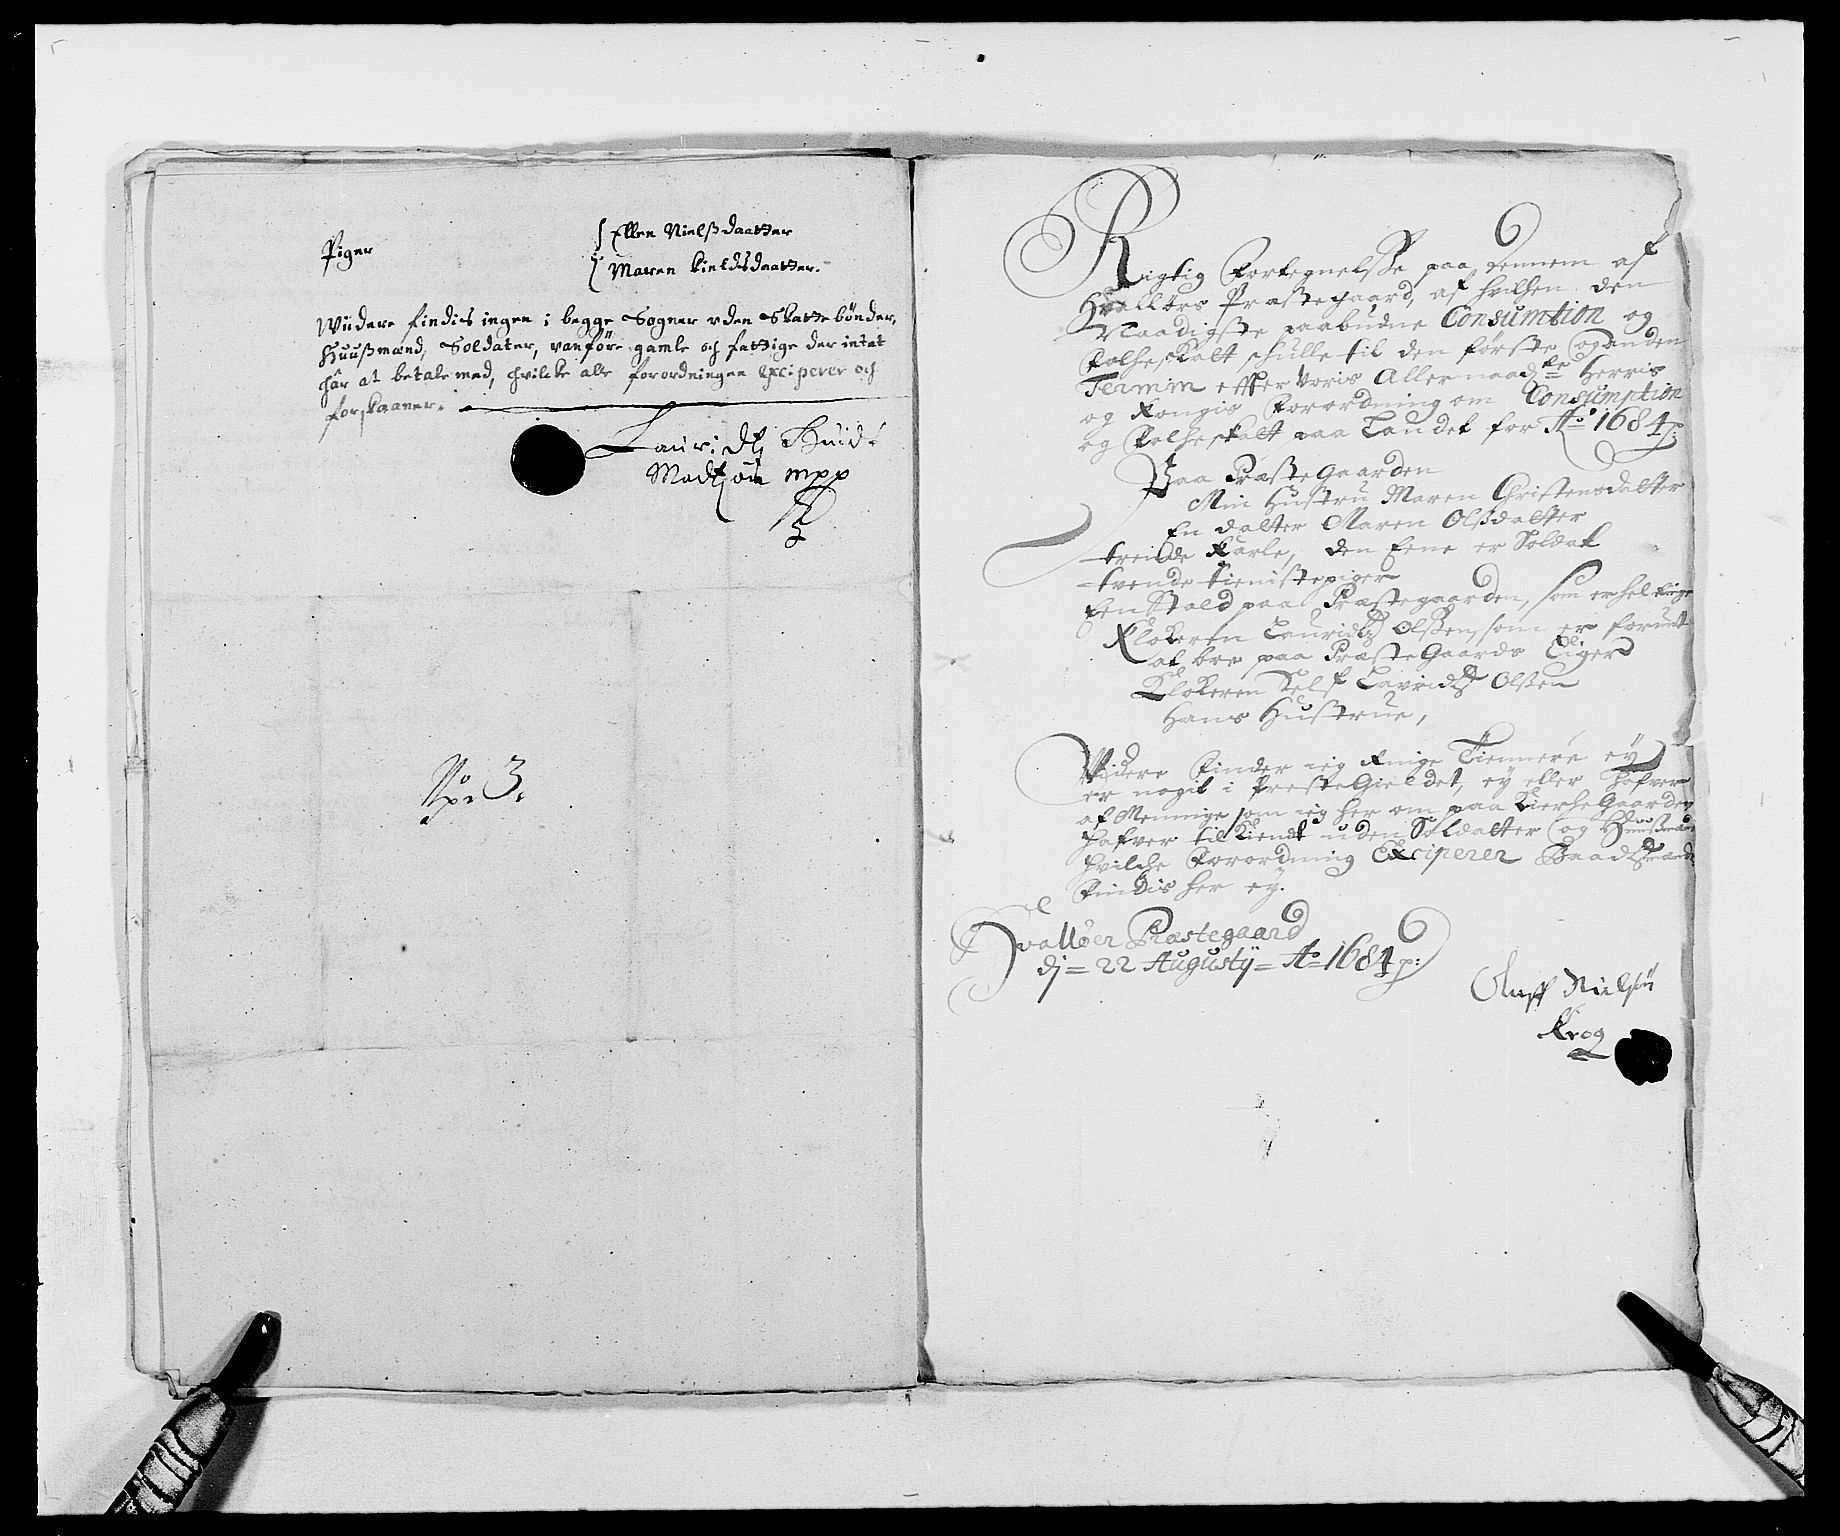 Piger
Ellen Nielsdaatter
Maren Kieldsdaatter.
Wiidere findis ingen i begge Sogner uden Skatte bønder,
Huusmænd, Soldater, vanføre gamle och fattige der intet
hâr at betale med, hvilcke alle forordningen exciperer och
forskaaner.
Lauridtz Huid
Madtzøn mpp
No 3.
Rigtig Fortegnelsse paa dennem af
Hvallørs Præstegaard, af hvilchen den
Naadigste paabudne Consumtion og
Folcheskatt schulle til den første og anden
Termin effter Voris Allernaadste Herris
og Kongis Forordning om Consumption
og Folcheskatt paa Landet for Ao 1684 p:
Paa PræsteGaarden
Min Hustru Maren Christensdatter
En datter Maren Olsdatter
trende Karle, den Eene er Soldat
tvende tienistepiger
Een Stald paa Præstegaarden, som er hel ringe
Klokeren Lauridtz Olssen, som er forunt
at boe paa PræsteGaards Eiger
Klokeren Self Lavridtz Olsen
Hans Hustrue,
Videre Finder ieg Ringe Tiennere ey
er nogit i PresteGieldet, ey eller hafver
af Mennige som ieg her om paa KircheGaarden
hafver tilkiendt uden Soldatter og Huusmænd
hvilche Forordning Exciperer Baadsmænd
Findis her ey.
Hvalløer Præstegaard
dj = 22 Augustij = Ao 1684 p:
Oluff Nielsøn
Krog